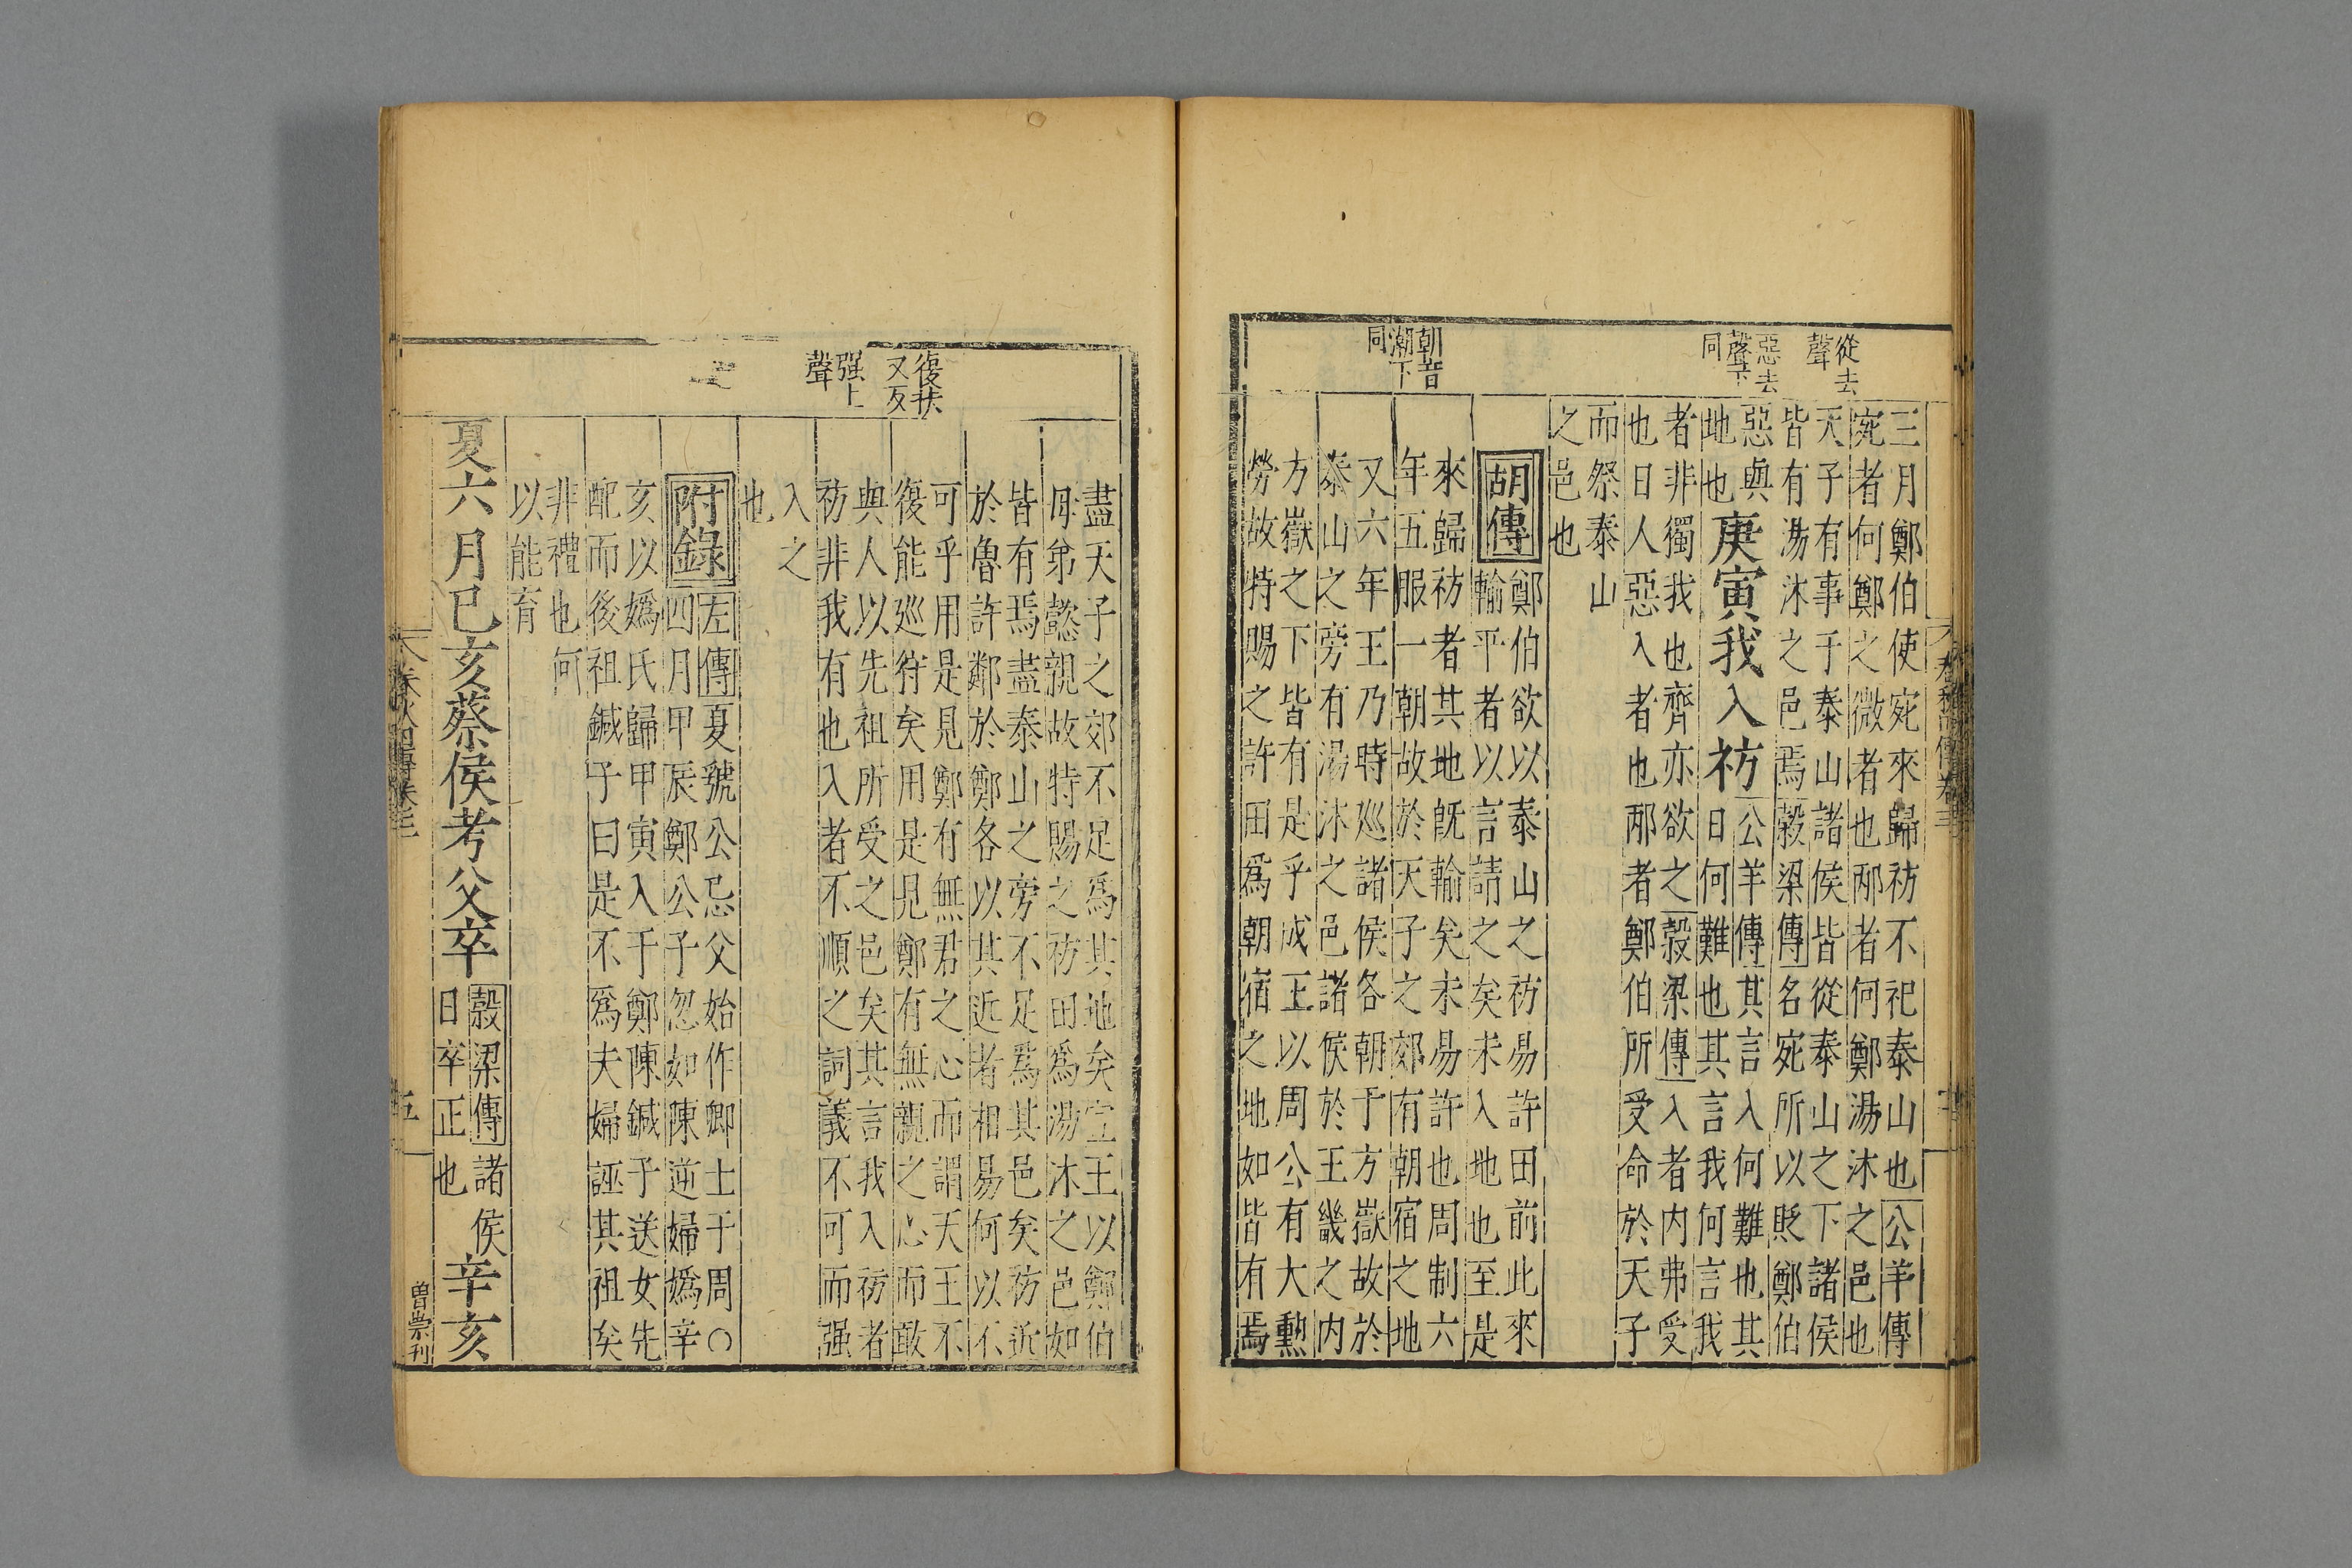 春秋四傳卷三
從去
聲
惡去
聲下
同
朝音
潮下
同
三月鄭伯使宛來歸祊不祀泰山也公羊傳
宛者何鄭之微者也邴者何鄭湯沐之邑也
天子有事于泰山諸侯皆從泰山之下諸侯
皆有湯沐之邑焉穀梁傳名宛所以貶鄭伯
惡與
地也
庚寅我入祊
公羊傳其言入何難也其
日何難也其言我何言我
者非獨我也齊亦欲之穀梁傳入者內弗受
也日人惡入者也邴者鄭伯所受命於天子
而祭泰山
之邑也
胡傳
鄭伯欲以泰山之祊易許田前此來
輸平者以言請之矣未入地也至是
來歸祊者其地旣輸矣未易許也周制六
年五服一朝故於天子之郊有朝宿之地
又六年王乃時巡諸侯各朝于方嶽故於
泰山之旁有湯沐之邑諸侯於王畿之內
方嶽之下皆有是乎成王以周公有大勲
勞故特賜之許田爲朝宿之地如皆有焉
復扶
又反
强上
聲
盡天子之郊不足爲其地矣宣王以鄭伯
母弟懿親故特賜之祊田爲湯沐之邑如
皆有焉盡泰山之旁不足爲其邑矣祊近
於魯許鄰於鄭各以其近者相易何以不
可乎用是見鄭有無君之心而謂天王不
復能巡狩矣用是見鄭有無親之心而敢
與人以先祖所受之邑矣其言我入祊者
祊非我有也入者不順之詞義不可而强
入之
也
附錄
左傳夏虢公忌父始作卿士于周○
四月甲辰鄭公子忽如陳逆婦嬀辛
亥以嬀氏歸甲寅入于鄭陳鍼子送女先
配而後祖鍼子曰是不爲夫婦誣其祖矣
非禮也何
以能育
夏六月己亥蔡侯考父卒
穀梁傳諸侯
日卒正也
辛亥
春秋四傳卷三
五
曾崇刊